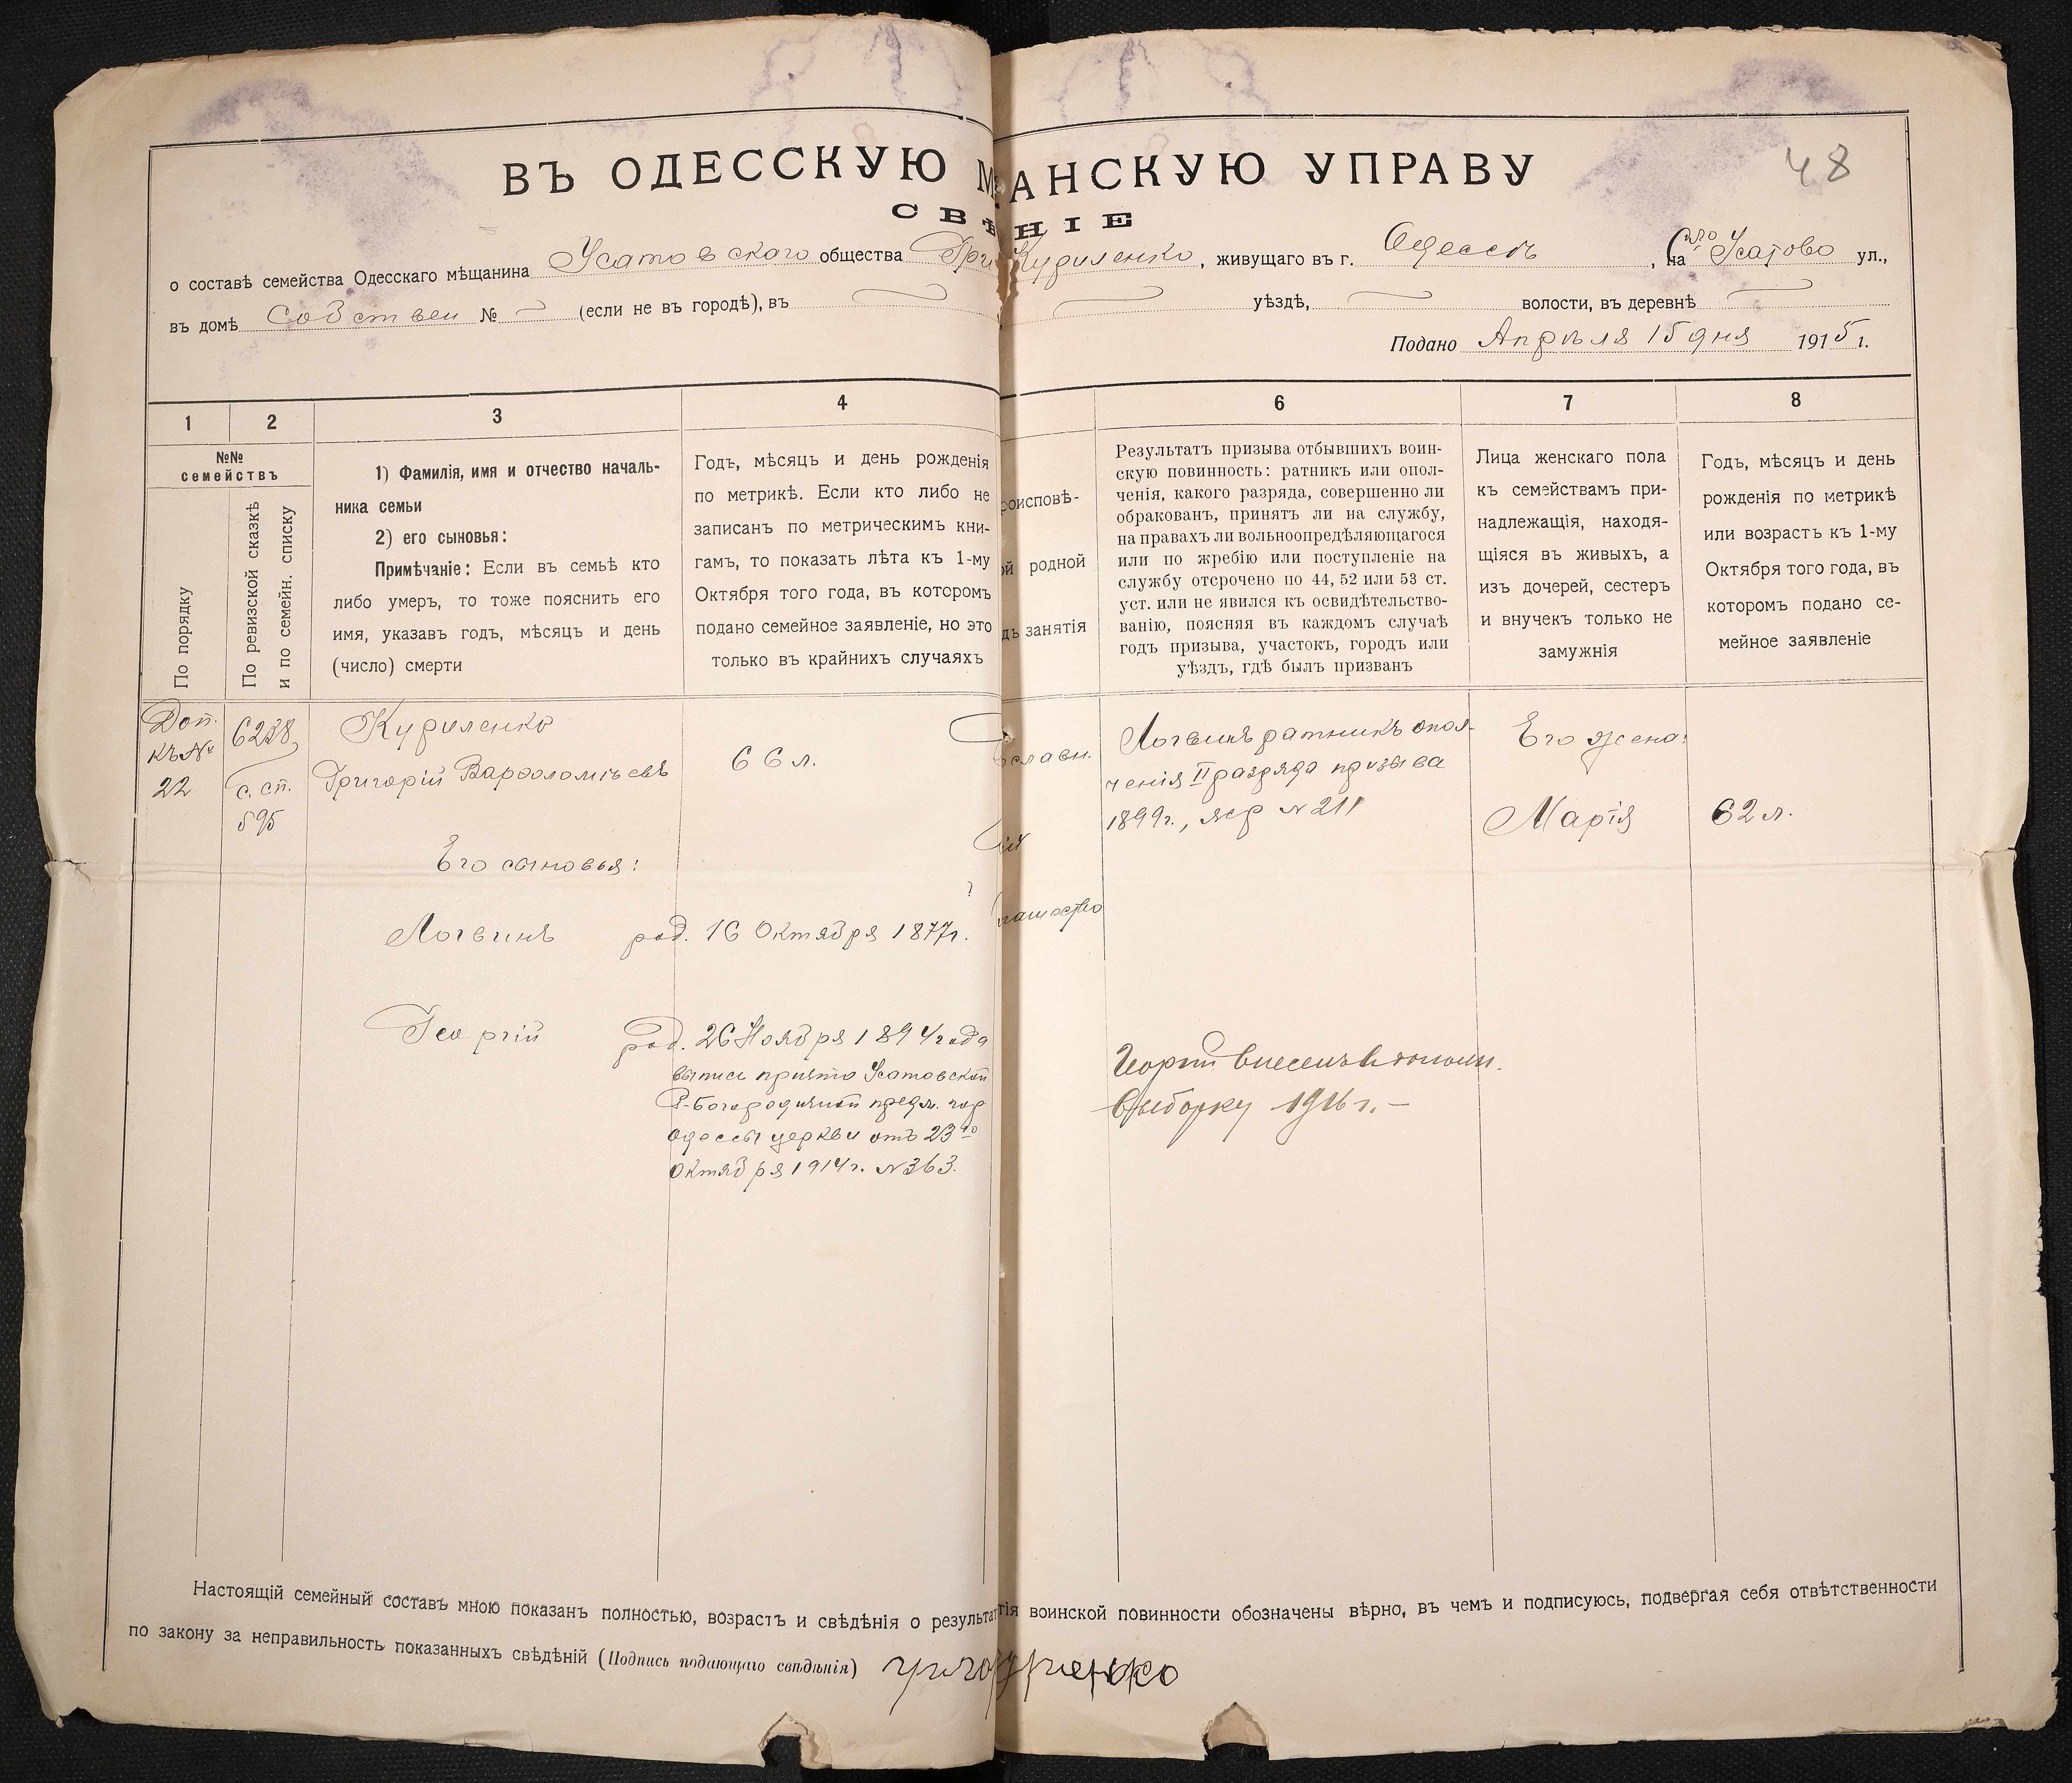 48
ВЪ ОДЕССКУЮ М АНСКУЮ УПРАВУ
СВѢ НІЕ
о составѣ семейства Одесскаго мѣщанина Усатовского общества Гри Куриленко, живущаго въ г. Одессѣ, на Усатово ул.,
въ домѣ Собствен № — (если не въ городѣ), въ — — уѣздѣ, — волости, въ деревнѣ —
Подано Апрѣля 15 дня 1915 г.
1 2 3 4 6 7 8
№№
семействъ
По порядку
По ревизской сказкѣ
и по семейн. списку
1) Фамилія, имя и отчество началь-
ника семьи
2) его сыновья:
Примѣчаніе: Если въ семьѣ кто
либо умеръ, то тоже пояснить его
имя, указавъ годъ, мѣсяцъ и день
(число) смерти
Годъ, мѣсяцъ и день рожденія
по метрикѣ. Если кто либо не
записанъ по метрическимъ кни-
гамъ, то показать лѣта къ 1-му
Октября того года, въ которомъ
подано семейное заявленіе, но это
только въ крайнихъ случаяхъ
роисповѣ-
ой родной
дъ занятія
Результатъ призыва отбывшихъ воин-
скую повинность: ратникъ или опол-
ченія, какого разряда, совершенно ли
обракованъ, принятъ ли на службу,
на правахъ ли вольноопредѣляющагося
или по жребію или поступленіе на
службу отсрочено по 44, 52 или 53 ст.
уст. или не явился къ освидѣтельство-
ванію, поясняя въ каждомъ случаѣ
годъ призыва, участокъ, городъ или
уѣздъ, гдѣ былъ призванъ
Лица женскаго пола
къ семействамъ при-
надлежащія, находя-
щіяся въ живыхъ, а
изъ дочерей, сестеръ
и внучекъ только не
замужнія
Годъ, мѣсяцъ и день
рожденія по метрикѣ
или возрастъ къ 1-му
Октября того года, въ
которомъ подано се-
мейное заявленіе
Доп.
къ №
22
6238
с. сп.
595
Куриленко
Григорій Варфоломѣевъ
66 л.
Его сыновья:
Логвинъ род. 16 Октября 1877 г.
Георгій род. 26 Ноября 1894 года
выпись Усатовской
Р-Богородичной предм. гор
Одессы церкви отъ 23го
Октября 1914 г. № 363.
славн.
Логвинъ ратникъ опол-
ченія II разряда призыва
1899 г., жер № 211
Георгій внесенъ
выборку 1916 г. —
Его жена:
Марія
62 л.
Настоящій семейный составъ мною показанъ полностью, возрастъ и свѣдѣнія о результат тія воинской повинности обозначены вѣрно, въ чемъ и подписуюсь, подвергая себя отвѣтственности
по закону за неправильность показанныхъ свѣдѣній (Подпись подающаго свѣдѣнія)